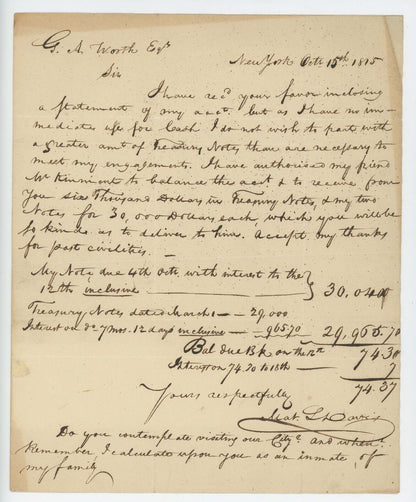 G. A. Worth Esqr
New York Octr 15th 1815
Sir
I have recd your favor inclosing
a statement of my acct. but as I have no im-
mediate use for Cash I do not wish to part with
a greater amt of Treasury Notes than are necessary to
meet my engagements. I have authorised my friend
Mr Kinmont to balance the acct & to receive from
You six Thousand Dollars in Treasury Notes, & my two
Notes for 30,000 Dollars each which you will be
so kind as to deliver to him. Accept my thanks
for past civilities. —
My Note due 4th Octr, with interest to the
12th inclusive } 30,040
Treasury Notes dated March 1 — 29,000
Interest on do 7 mos. 12 days inclusive — 965.70 29,965.70
Bal due Bk on the 12th 74.30
Interest on 74.30 to 18th — 7
74.37
Yours respectfully
Mat. L. Davis
Do you contemplate visiting our City? and when?
Remember I calculate upon you as an inmate of
my family